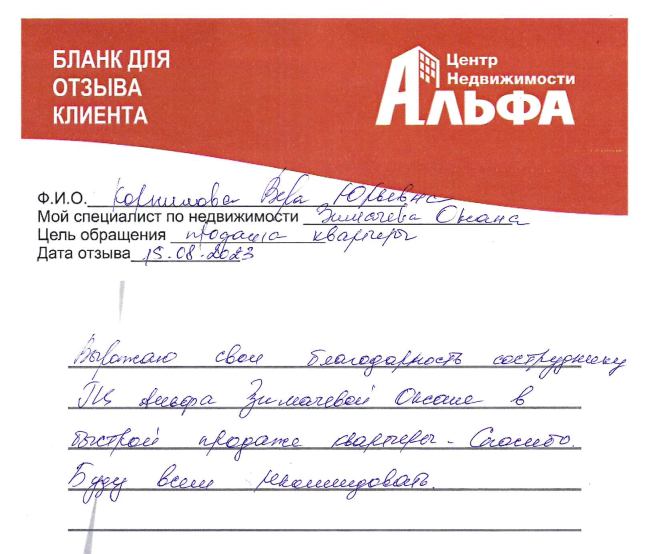 БЛАНК ДЛЯ
ОТЗЫВА
КЛИЕНТА
Центр
Недвижимости
АЛЬФА
Ф.И.О. Корнилова Вера Юрьевна
Мой специалист по недвижимости Зимачева Оксана
Цель обращения продажа квартиры
Дата отзыва 15.08.2023
Выражаю свою благодарность сотруднику
Альфа Зимачевой Оксане в
быстрой продаже квартиры. Спасибо.
Буду всем рекомендовать.